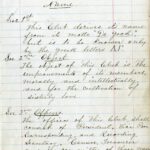 Name
Sec. 1st
This Club derives its name
from its motto "Do good"
but is to be known only
by the Greek letters
Sec. 2nd Object
The object of this Club is the
improvement of its members
morally, and intellectually
and for the cultivation of
sisterly love
Sec. 3rd Officers
The Officers of this Club shall
consist of President, Vice Pres
Corresponding, and Recording
Secretary, Censor, Treasurer